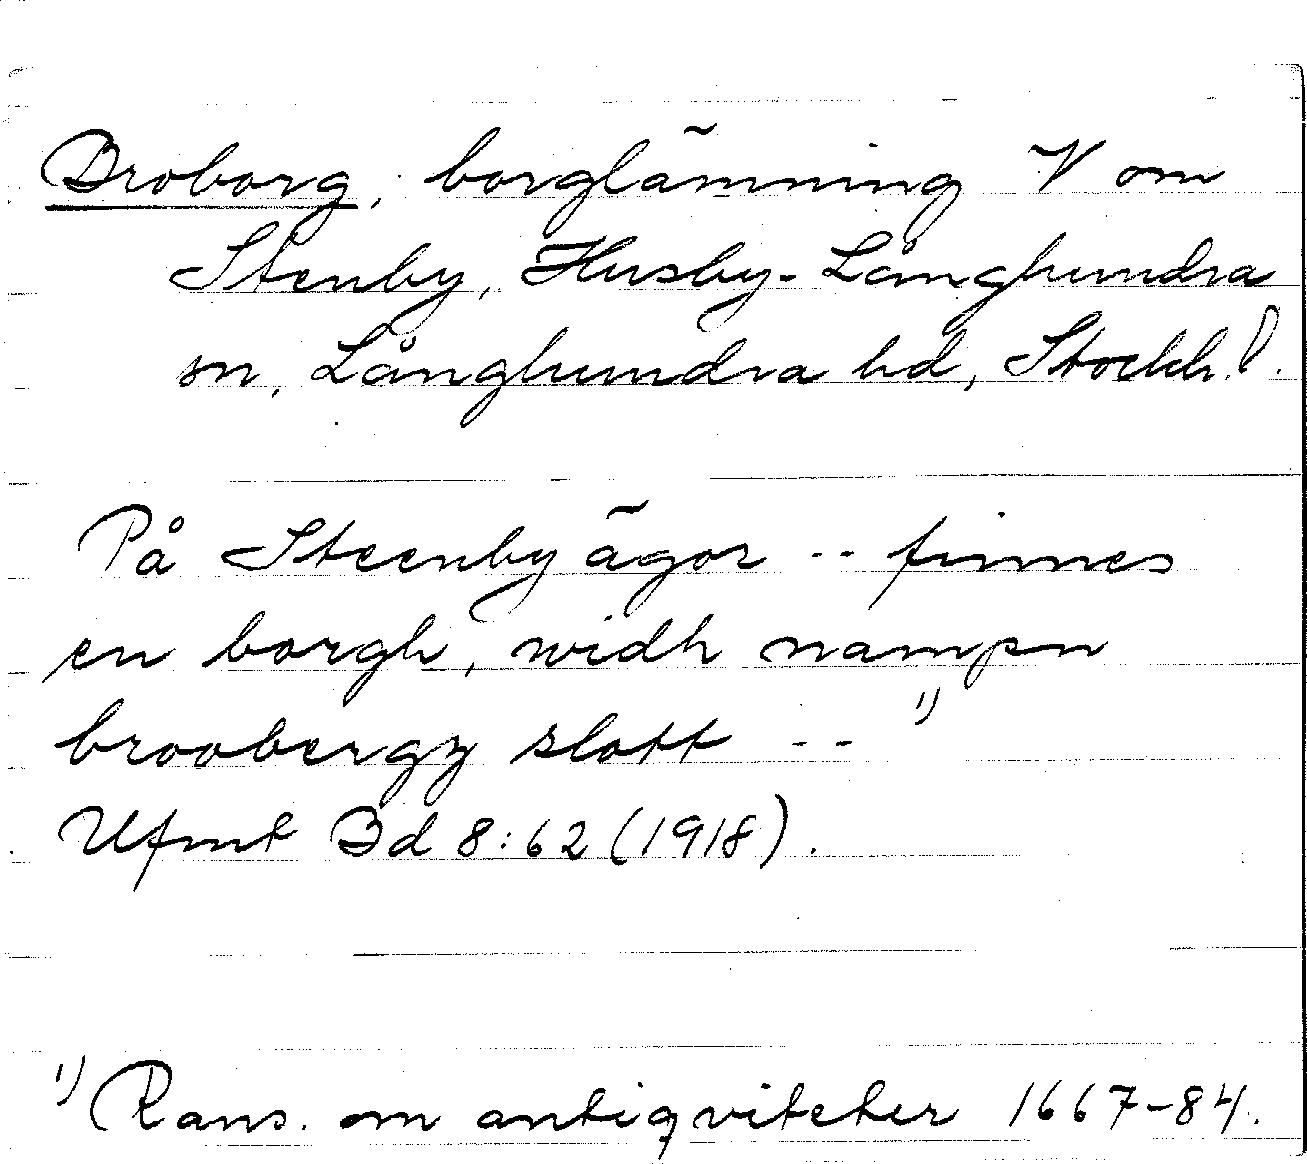 Broborg, borglämning V om
Stenby, Husby-Långhundra
sn, Långhundra hd, Stockh. l.
På Steenby ägor -- finnes
en borgh, widh nampn
broobergz slott -- 1)
Ufmt Bd 8:62 (1918).
1) Rans. om antiqviteter 1667-84.